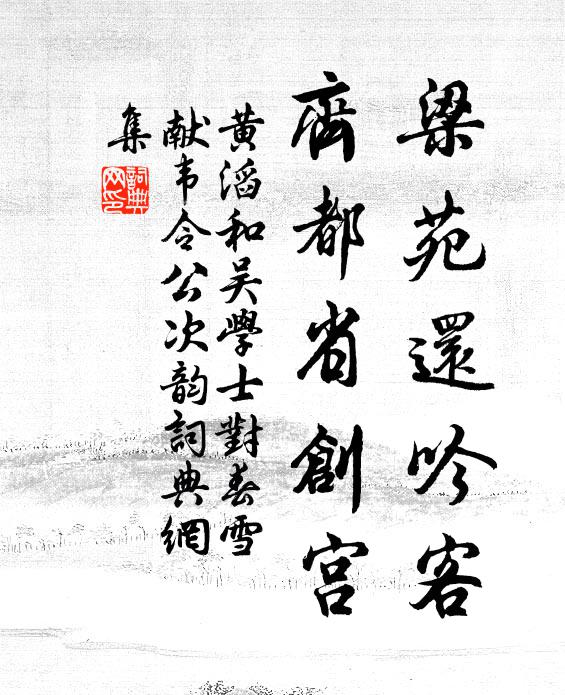 梁苑還吟客
齊都省創宮
黄滔和吴學士對春雪
献韦令公次韵詞典網
集
詞典網印